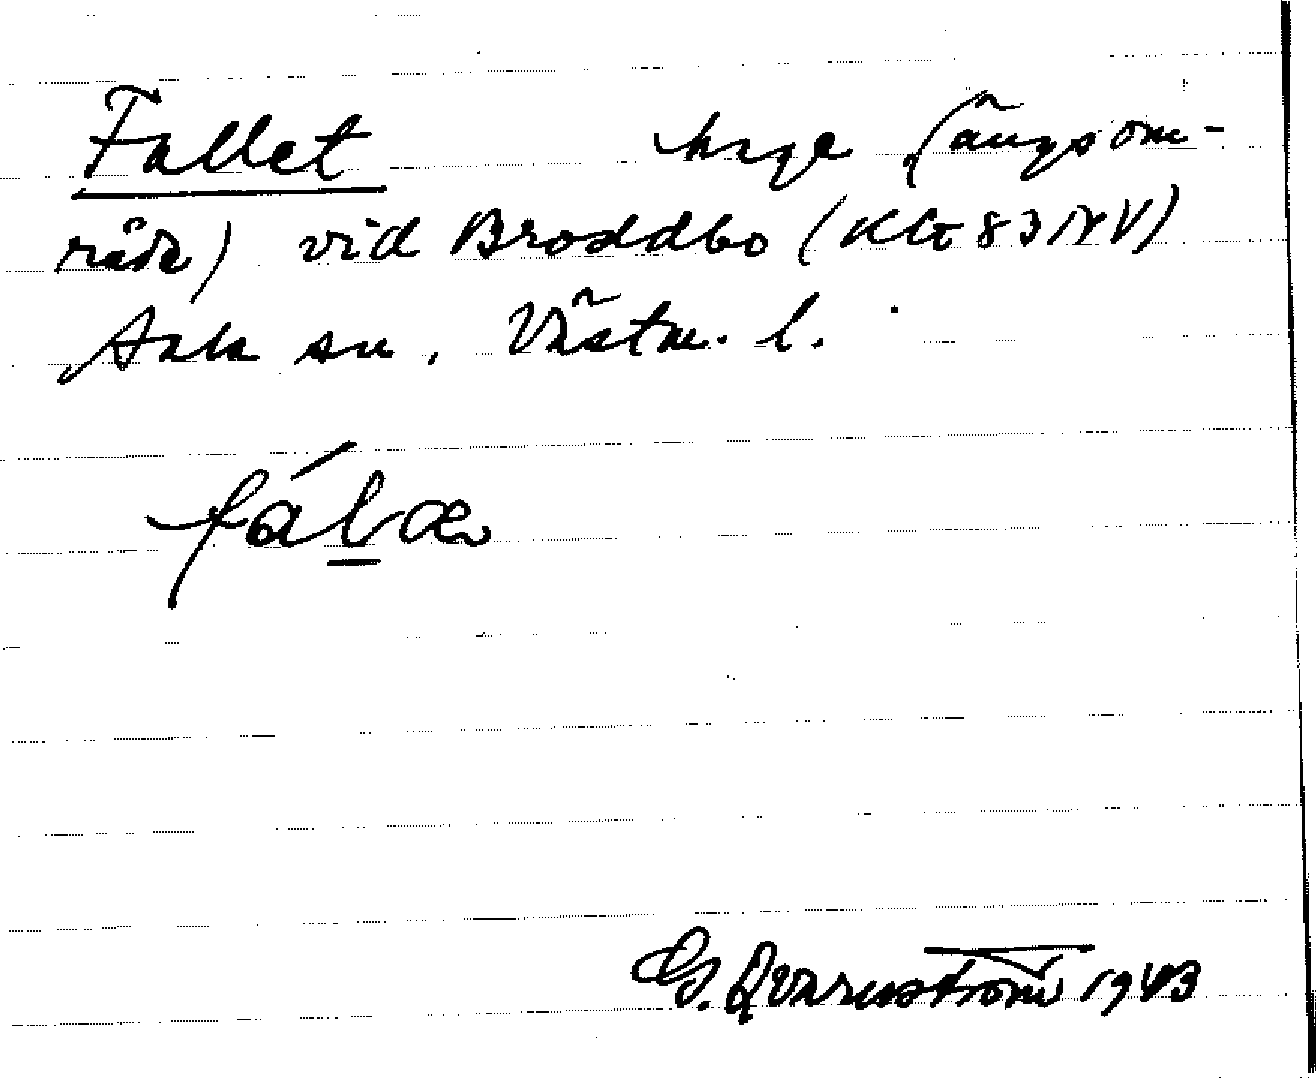 Fallet hage (ängsom-
råde) vid Broddbo (Kbl 83 NV)
Sala sn. Västm. l.
fálæ
G. Qvarnström 1943